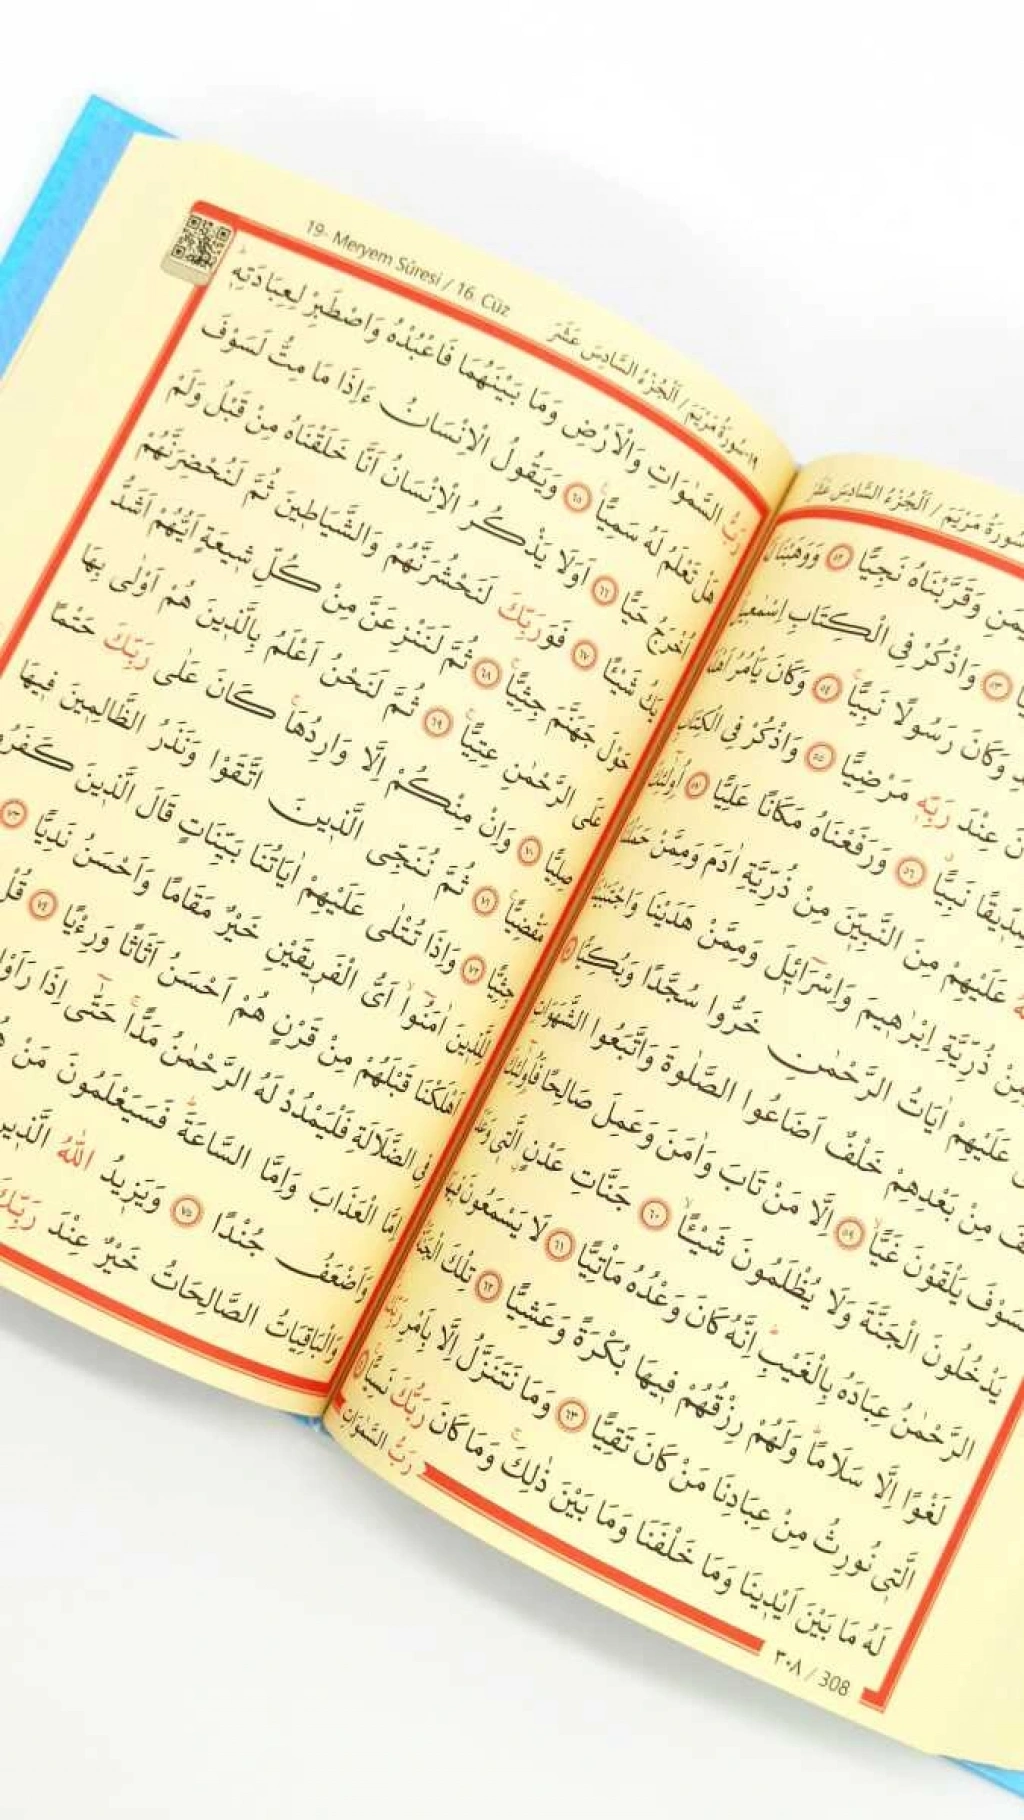 سُورَةُ مَرْيَمَ / اَلْجُزْءُ السَّادِسَ عَشَرَ
وَقَرَّبْنَاهُ نَجِيًّا ٥٢ وَوَهَبْنَا
٥٣ وَاذْكُرْ فِي الْكِتَابِ اِسْمٰعِيلَ
وَكَانَ رَسُولًا نَبِيًّا ٥٤ وَكَانَ يَأْمُرُ اَهْلَهُ
عِنْدَ رَبِّهِ مَرْضِيًّا ٥٥ وَاذْكُرْ فِي الْكِتَابِ
نَبِيًّا ٥٦ وَرَفَعْنَاهُ مَكَانًا عَلِيًّا ٥٧ اُولٰٓئِكَ
عَلَيْهِمْ مِنَ النَّبِيِّينَ مِنْ ذُرِّيَّةِ اٰدَمَ وَمِمَّنْ
ذُرِّيَّةِ اِبْرٰهِيمَ وَاِسْرَٓائِلَ وَمِمَّنْ هَدَيْنَا وَاجْتَبَيْنَا
عَلَيْهِمْ اٰيَاتُ الرَّحْمٰنِ خَرُّوا سُجَّدًا وَبُكِيًّا
مِنْ بَعْدِهِمْ خَلْفٌ اَضَاعُوا الصَّلٰوةَ وَاتَّبَعُوا الشَّهَوَاتِ
فَسَوْفَ يَلْقَوْنَ غَيًّا ٥٩ اِلَّا مَنْ تَابَ وَاٰمَنَ وَعَمِلَ صَالِحًا فَاُولٰٓئِكَ
يَدْخُلُونَ الْجَنَّةَ وَلَا يُظْلَمُونَ شَيْـًٔا ٦٠ جَنَّاتِ عَدْنٍ الَّتِي وَعَدَ
الرَّحْمٰنُ عِبَادَهُ بِالْغَيْبِ اِنَّهُ كَانَ وَعْدُهُ مَأْتِيًّا ٦١ لَا يَسْمَعُونَ فِيهَا
لَغْوًا اِلَّا سَلَامًا وَلَهُمْ رِزْقُهُمْ فِيهَا بُكْرَةً وَعَشِيًّا ٦٢ تِلْكَ الْجَنَّةُ
الَّتِي نُورِثُ مِنْ عِبَادِنَا مَنْ كَانَ تَقِيًّا ٦٣ وَمَا نَتَنَزَّلُ اِلَّا بِاَمْرِ رَبِّكَ
لَهُ مَا بَيْنَ اَيْدِينَا وَمَا خَلْفَنَا وَمَا بَيْنَ ذٰلِكَ وَمَا كَانَ رَبُّكَ نَسِيًّا ٦٤
رَبُّ السَّمٰوَاتِ
٣٠٨ / 308
19- Meryem Sûresi / 16. Cüz
١٩-سُورَةُ مَرْيَمَ / اَلْجُزْءُ السَّادِسَ عَشَرَ
رَبُّ السَّمٰوَاتِ وَالْاَرْضِ وَمَا بَيْنَهُمَا فَاعْبُدْهُ وَاصْطَبِرْ لِعِبَادَتِهِ
هَلْ تَعْلَمُ لَهُ سَمِيًّا ٦٥ وَيَقُولُ الْاِنْسَانُ ءَاِذَا مَا مِتُّ لَسَوْفَ
اُخْرَجُ حَيًّا ٦٦ اَوَلَا يَذْكُرُ الْاِنْسَانُ اَنَّا خَلَقْنَاهُ مِنْ قَبْلُ وَلَمْ
يَكُ شَيْئًا ٦٧ فَوَرَبِّكَ لَنَحْشُرَنَّهُمْ وَالشَّيَاطِينَ ثُمَّ لَنُحْضِرَنَّهُمْ
حَوْلَ جَهَنَّمَ جِثِيًّا ٦٨ ثُمَّ لَنَنْزِعَنَّ مِنْ كُلِّ شِيعَةٍ اَيُّهُمْ اَشَدُّ
عَلَى الرَّحْمٰنِ عِتِيًّا ٦٩ ثُمَّ لَنَحْنُ اَعْلَمُ بِالَّذِينَ هُمْ اَوْلٰى بِهَا
صِلِيًّا ٧٠ وَاِنْ مِنْكُمْ اِلَّا وَارِدُهَا كَانَ عَلٰى رَبِّكَ حَتْمًا
مَقْضِيًّا ٧١ ثُمَّ نُنَجِّي الَّذِينَ اتَّقَوْا وَنَذَرُ الظَّالِمِينَ فِيهَا
جِثِيًّا ٧٢ وَاِذَا تُتْلٰى عَلَيْهِمْ اٰيَاتُنَا بَيِّنَاتٍ قَالَ الَّذِينَ كَفَرُوا
لِلَّذِينَ اٰمَنُوا اَيُّ الْفَرِيقَيْنِ خَيْرٌ مَقَامًا وَاَحْسَنُ نَدِيًّا ٧٣
اَهْلَكْنَا قَبْلَهُمْ مِنْ قَرْنٍ هُمْ اَحْسَنُ اَثَاثًا وَرِءْيًا ٧٤ قُلْ
فِي الضَّلَالَةِ فَلْيَمْدُدْ لَهُ الرَّحْمٰنُ مَدًّا حَتّٰٓى اِذَا رَاَوْا
اِمَّا الْعَذَابَ وَاِمَّا السَّاعَةَ فَسَيَعْلَمُونَ مَنْ
وَاَضْعَفُ جُنْدًا ٧٥ وَيَزِيدُ اللّٰهُ الَّذِينَ
وَالْبَاقِيَاتُ الصَّالِحَاتُ خَيْرٌ عِنْدَ رَبِّكَ